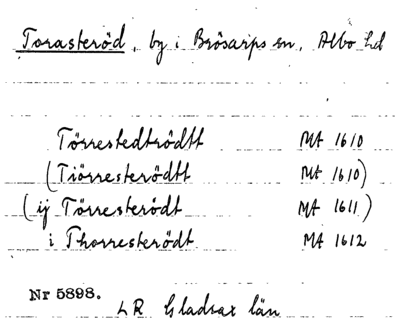 Torasteröd, by i Brösarps sn, Albo hd
Törrestedtrödtt MA 1610
(Tiörresterödtt MA 1610)
(ij Törresterödt MA 1611)
i Thorresterödt MA 1612
Nr 5898.
LR Gladsax län